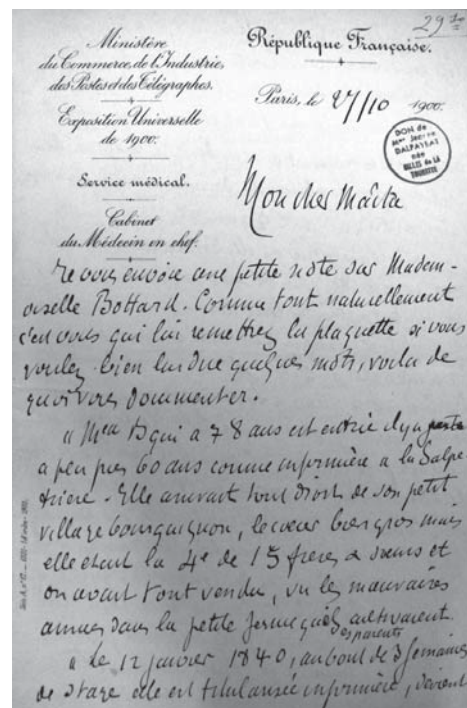 29
Ministère
du Commerce, de l'Industrie,
des Postes et des Télégraphes.
Exposition Universelle
de 1900.
Service médical.
Cabinet
du Médecin en chef.
République Française.
Paris, le 27/10 1900.
DON de
Mme
DALPAYRAT
née
GILLES de LA
TOURETTE
Mon cher Maître
Je vous envoie une petite note sur Madem-
oiselle Bottard. Comme tout naturellement
c'est vous qui lui remettrez la plaquette si vous
voulez bien lui dire quelques mots, voilà de
quoi vous documenter.
" Melle B qui a 78 ans est entrée il y a
a peu près 60 ans comme infirmière a la Salpe
trière. Elle arrivait tout droit de son petit
village bourguignon, le cœur bien gros mais
elle était la 4e de 15 frères & sœurs et
on avait tout vendu, vu les mauvaises
années dans la petite ferme que cultivaient
ses parents
" Le 12 janvier 1840, au bout de 3 semaines
de stage elle est titularisée infirmière, devient